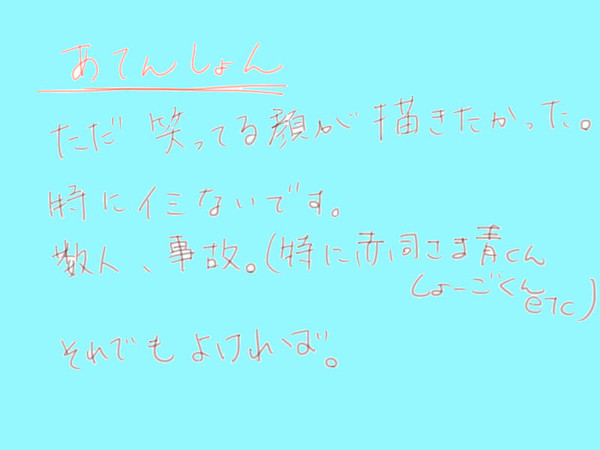 あてんしょん
ただ 笑ってる顔が 描きたかった。
時にイミないです。
数人、事故。(特に赤司さま青くん
しょーごくん
etc)
それでもよければ。